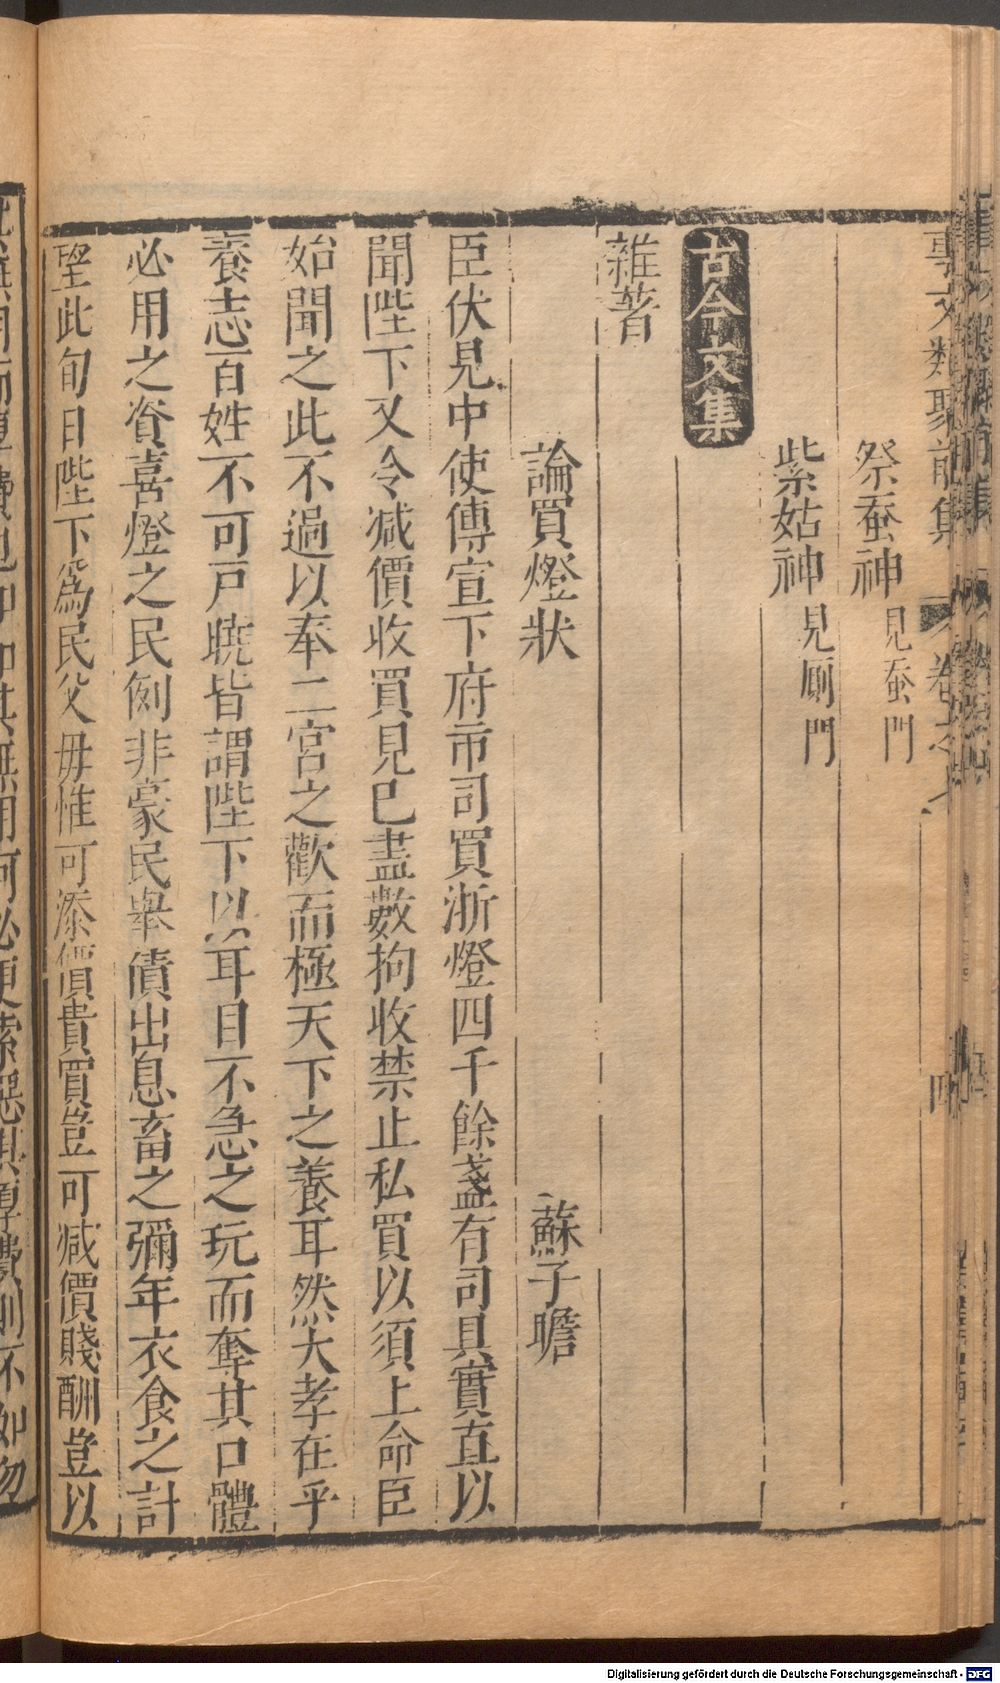 事文類聚前集 卷之七 四
祭蚕神 見蚕門
紫姑神 見廁門
古今文集
雜著
論買燈狀 蘇子瞻
臣伏見中使傳宣下府市司買浙燈四千餘盞有司具實直以
聞陛下又令减價收買見已盡數拘收禁止私買以須上命臣
始聞之此不過以奉二宮之歡而極天下之養耳然大孝在乎
養志百姓不可戶曉皆謂陛下以耳目不急之玩而奪其口體
必用之資喜燈之民例非豪民舉債出息畜之彌年衣食之計
望此旬日陛下爲民父母惟可添價貴買豈可减價賤酬豈以
其無用何必更索惡其厚費則不如勿
Digitalisierung gefördert durch die Deutsche Forschungsgemeinschaft - DFG